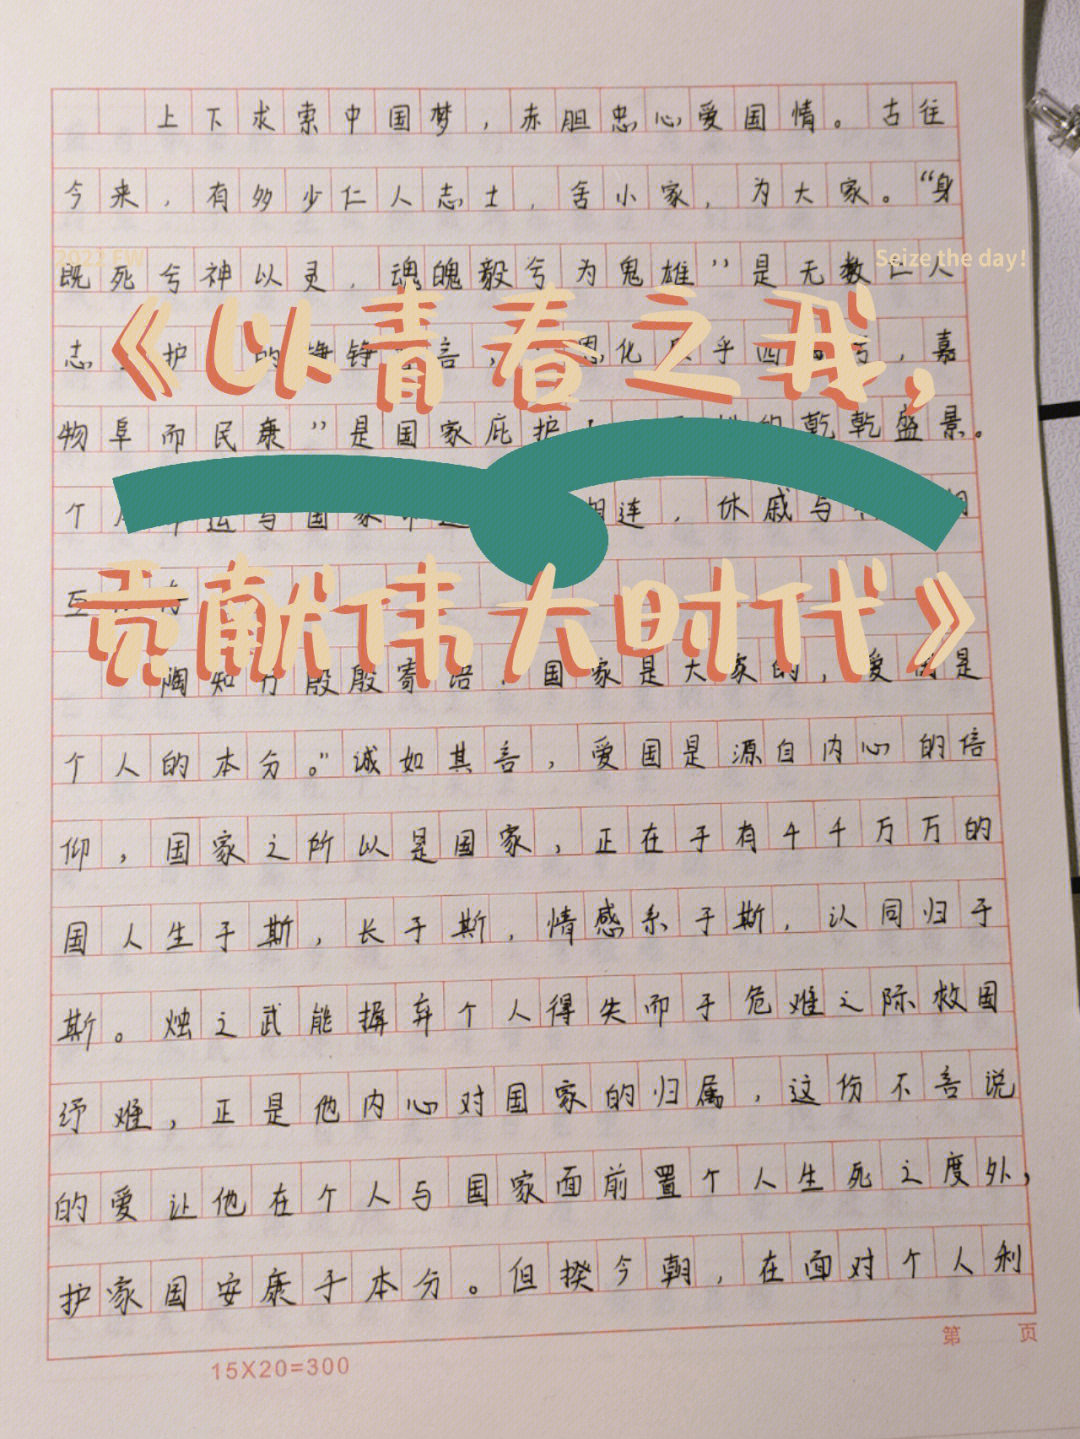 上下求索中国梦，赤胆忠心爱国情。古往
今来，有多少仁人志士，舍小家，为大家。“身
2022 EW
Seize the day!
既死兮神以灵，魂魄毅兮为鬼雄”是无数仁人
《以青春之我，
志 护 的铮铮 言， 恩化 乎四 ，嘉
物阜而民康”是国家庇护 的乾乾盛景。
个 与国家 相连，休戚与
贡献伟大时代》
陶知行殷殷寄语：国家是大家的，爱国是
个人的本分。”诚如其言，爱国是源自内心的信
仰，国家之所以是国家，正在于有千千万万的
国人生于斯，长于斯，情感系于斯，认同归于
斯。烛之武能摒弃个人得失而于危难之际救国
纾难，正是他内心对国家的归属，这份不言说
的爱让他在个人与国家面前置个人生死之度外，
护家国安康于本分。但揆今朝，在面对个人利
第 页
15X20=300